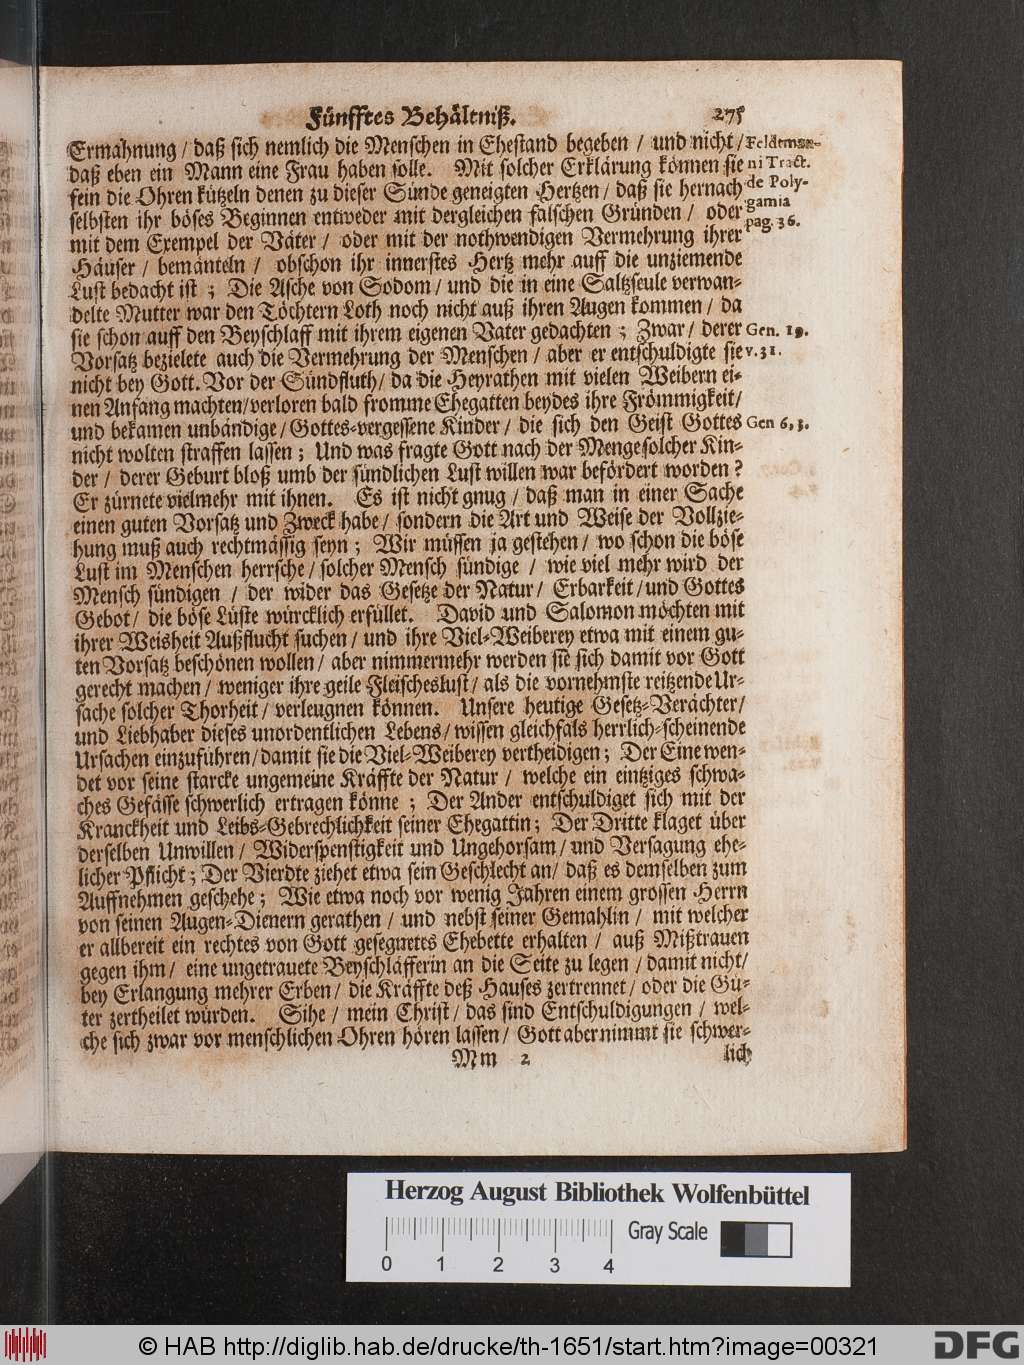 Fünfftes Behältniß. 275
Ermahnung / daß sich nemlich die Menschen in Ehestand begeben / und nicht /
daß eben ein Mann eine Frau haben solle. Mit solcher Erklärung können sie
fein die Ohren kützeln denen zu dieser Sünde geneigten Hertzen / daß sie hernach
selbsten ihr böses Beginnen entweder mit dergleichen falschen Gründen / oder
mit dem Exempel der Väter / oder mit der nothwendigen Vermehrung ihrer
Häuser / bemänteln / obschon ihr innerstes Hertz mehr auff die unziemende
Lust bedacht ist ; Die Asche von Sodom / und die in eine Saltzseule verwan-
delte Mutter war den Töchtern Loth noch nicht auß ihren Augen kommen / da
sie schon auff den Beyschlaff mit ihrem eigenen Vater gedachten ; Zwar / derer
Vorsatz bezielete auch die Vermehrung der Menschen / aber er entschuldigte sie
nicht bey Gott. Vor der Sündfluth / da die Heyrathen mit vielen Weibern ei-
nen Anfang machten / verloren bald fromme Ehegatten beydes ihre Frömmigkeit /
und bekamen unbändige / Gottes-vergessene Kinder / die sich den Geist Gottes
nicht wolten straffen lassen ; Und was fragte Gott nach der Menge solcher Kin-
der / derer Geburt bloß umb der sündlichen Lust willen war befördert worden ?
Er zürnete vielmehr mit ihnen. Es ist nicht gnug / daß man in einer Sache
einen guten Vorsatz und Zweck habe / sondern die Art und Weise der Vollzie-
hung muß auch rechtmässig seyn ; Wir müssen ja gestehen / wo schon die böse
Lust im Menschen herrsche / solcher Mensch sündige / wie viel mehr wird der
Mensch sündigen / der wider das Gesetze der Natur / Erbarkeit / und Gottes
Gebot / die böse Lüste würcklich erfüllet. David und Salomon möchten mit
ihrer Weisheit Außflucht suchen / und ihre Viel-Weiberey etwa mit einem gu-
ten Vorsatz beschönen wollen / aber nimmermehr werden sie sich damit vor Gott
gerecht machen / weniger ihre geile Fleischeslust / als die vornehmste reitzende Ur-
sache solcher Thorheit / verleugnen können. Unsere heutige Gesetz-Verächter /
und Liebhaber dieses unordentlichen Lebens / wissen gleichfals herrlich-scheinende
Ursachen einzuführen / damit sie die Viel-Weiberey vertheidigen ; Der Eine wen-
det vor seine starcke ungemeine Kräffte der Natur / welche ein eintziges schwa-
ches Gefässe schwerlich ertragen könne ; Der Ander entschuldiget sich mit der
Kranckheit und Leibs-Gebrechlichkeit seiner Ehegattin ; Der Dritte klaget über
derselben Unwillen / Widerspenstigkeit und Ungehorsam / und Versagung ehe-
licher Pflicht ; Der Vierdte ziehet etwa sein Geschlecht an / daß es demselben zum
Auffnehmen geschehe ; Wie etwa noch vor wenig Jahren einem grossen Herrn
von seinen Augen-Dienern gerathen / und nebst seiner Gemahlin / mit welcher
er allbereit ein rechtes von Gott gesegnetes Ehebette erhalten / auß Mißtrauen
gegen ihm / eine ungetrauete Beyschläfferin an die Seite zu legen / damit nicht /
bey Erlangung mehrer Erben / die Kräffte deß Hauses zertrennet / oder die Gü-
ter zertheilet würden. Sihe / mein Christ / das sind Entschuldigungen / wel-
che sich zwar vor menschlichen Ohren hören lassen / Gott aber nimmt sie schwer-
Mm 2 lich
Feldtman-
ni Tract.
de Poly-
gamia
pag. 36.
Gen. 19.
v. 31.
Gen 6, 3.
Herzog August Bibliothek Wolfenbüttel
Gray Scale
0 1 2 3 4
© HAB http://diglib.hab.de/drucke/th-1651/start.htm?image=00321
DFG